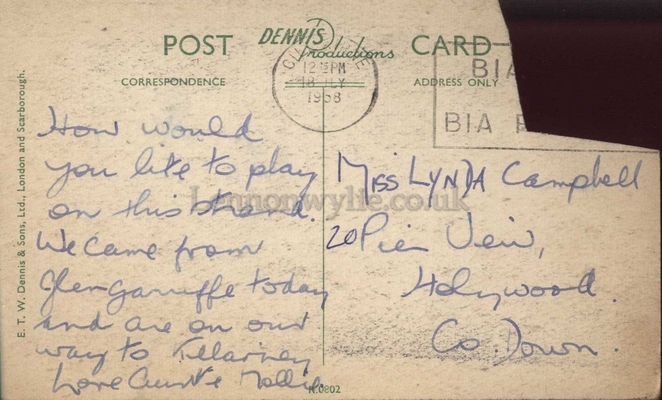 POST CARD
DENNIS
Productions
CORRESPONDENCE
ADDRESS ONLY
12 PM
18 JLY
1958
BIA
BIA
How would
you like to play
on this strand.
We came from
Glengarriffe today
and are on our
way to Killarney
Love Aunte Mollie.
Miss LYNDA Campbell
20 Pier Veiw,
Holywood.
Co. Down.
E. T. W. Dennis & Sons, Ltd., London and Scarborough.
Lennonwylie.co.uk
K.0802